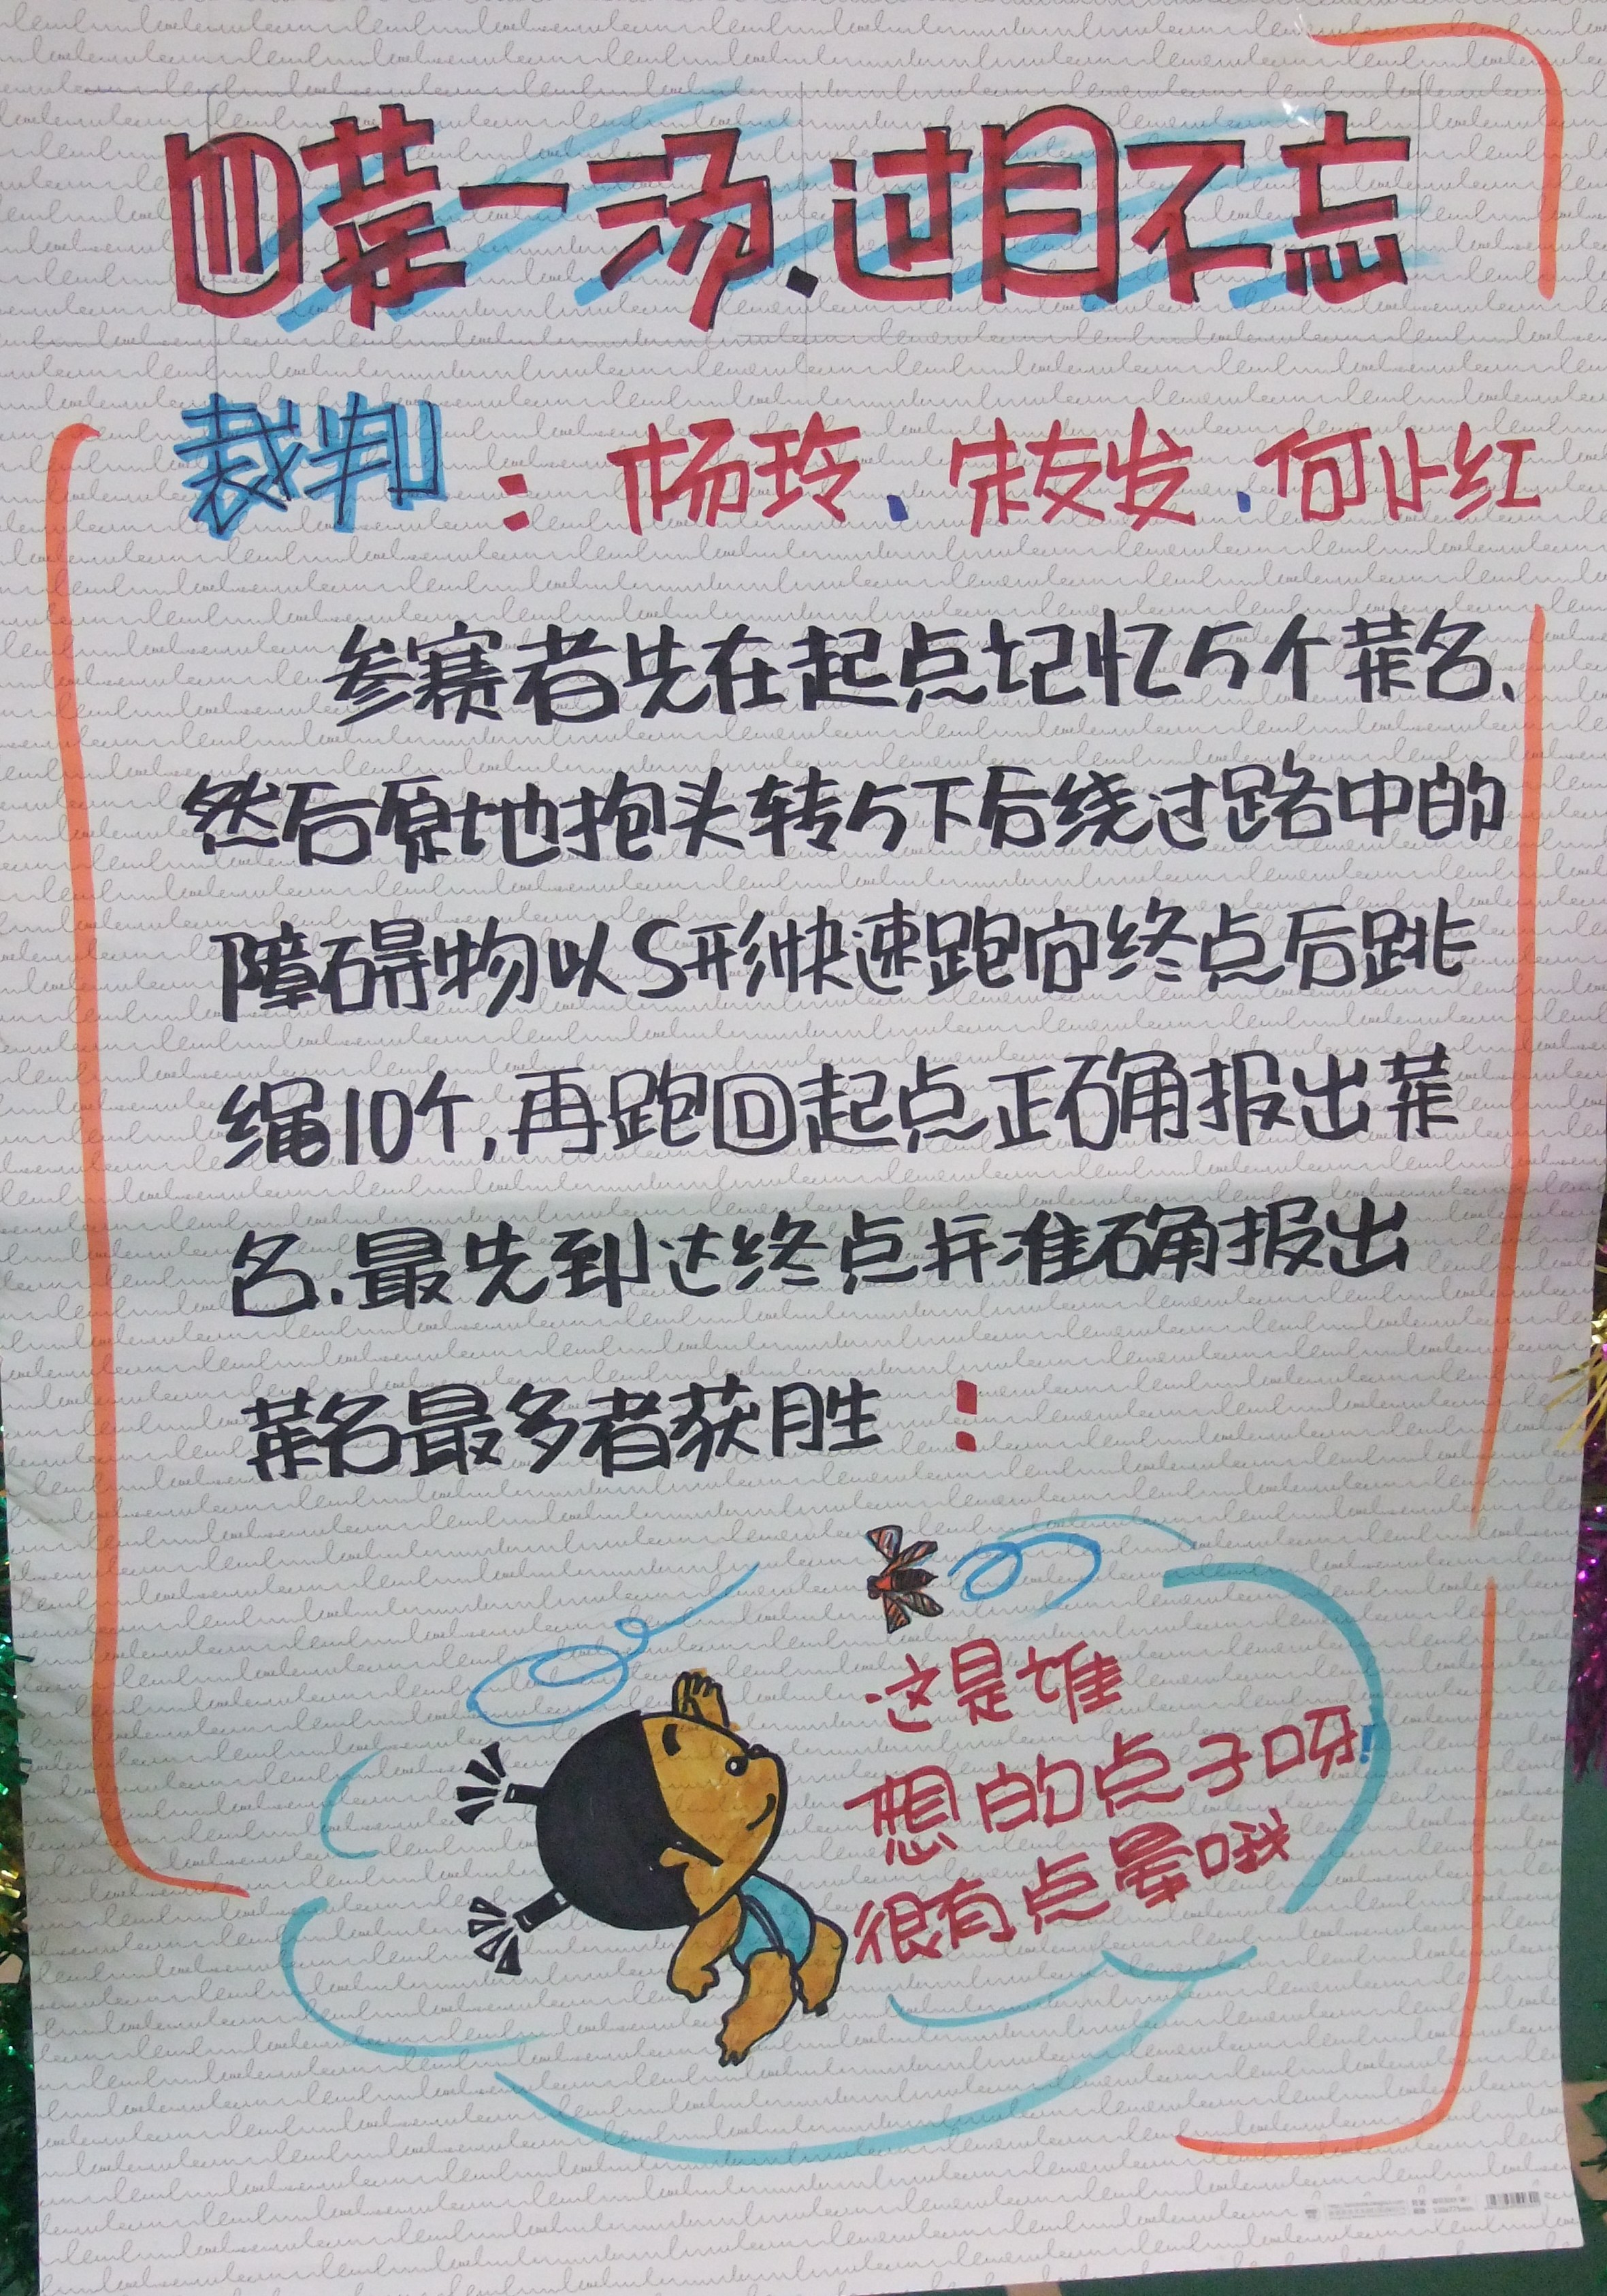 四菜一汤.过目不忘
裁判：杨玲、宋友发、何小红
参赛者先在起点记忆5个菜名、
然后原地抱头转5下后绕过路中的
障碍物以S形快速跑向终点后跳
绳10个,再跑回起点正确报出菜
名.最先到达终点并准确报出
菜名最多者获胜：
这是谁
想的点子呀!
很有点晕哦